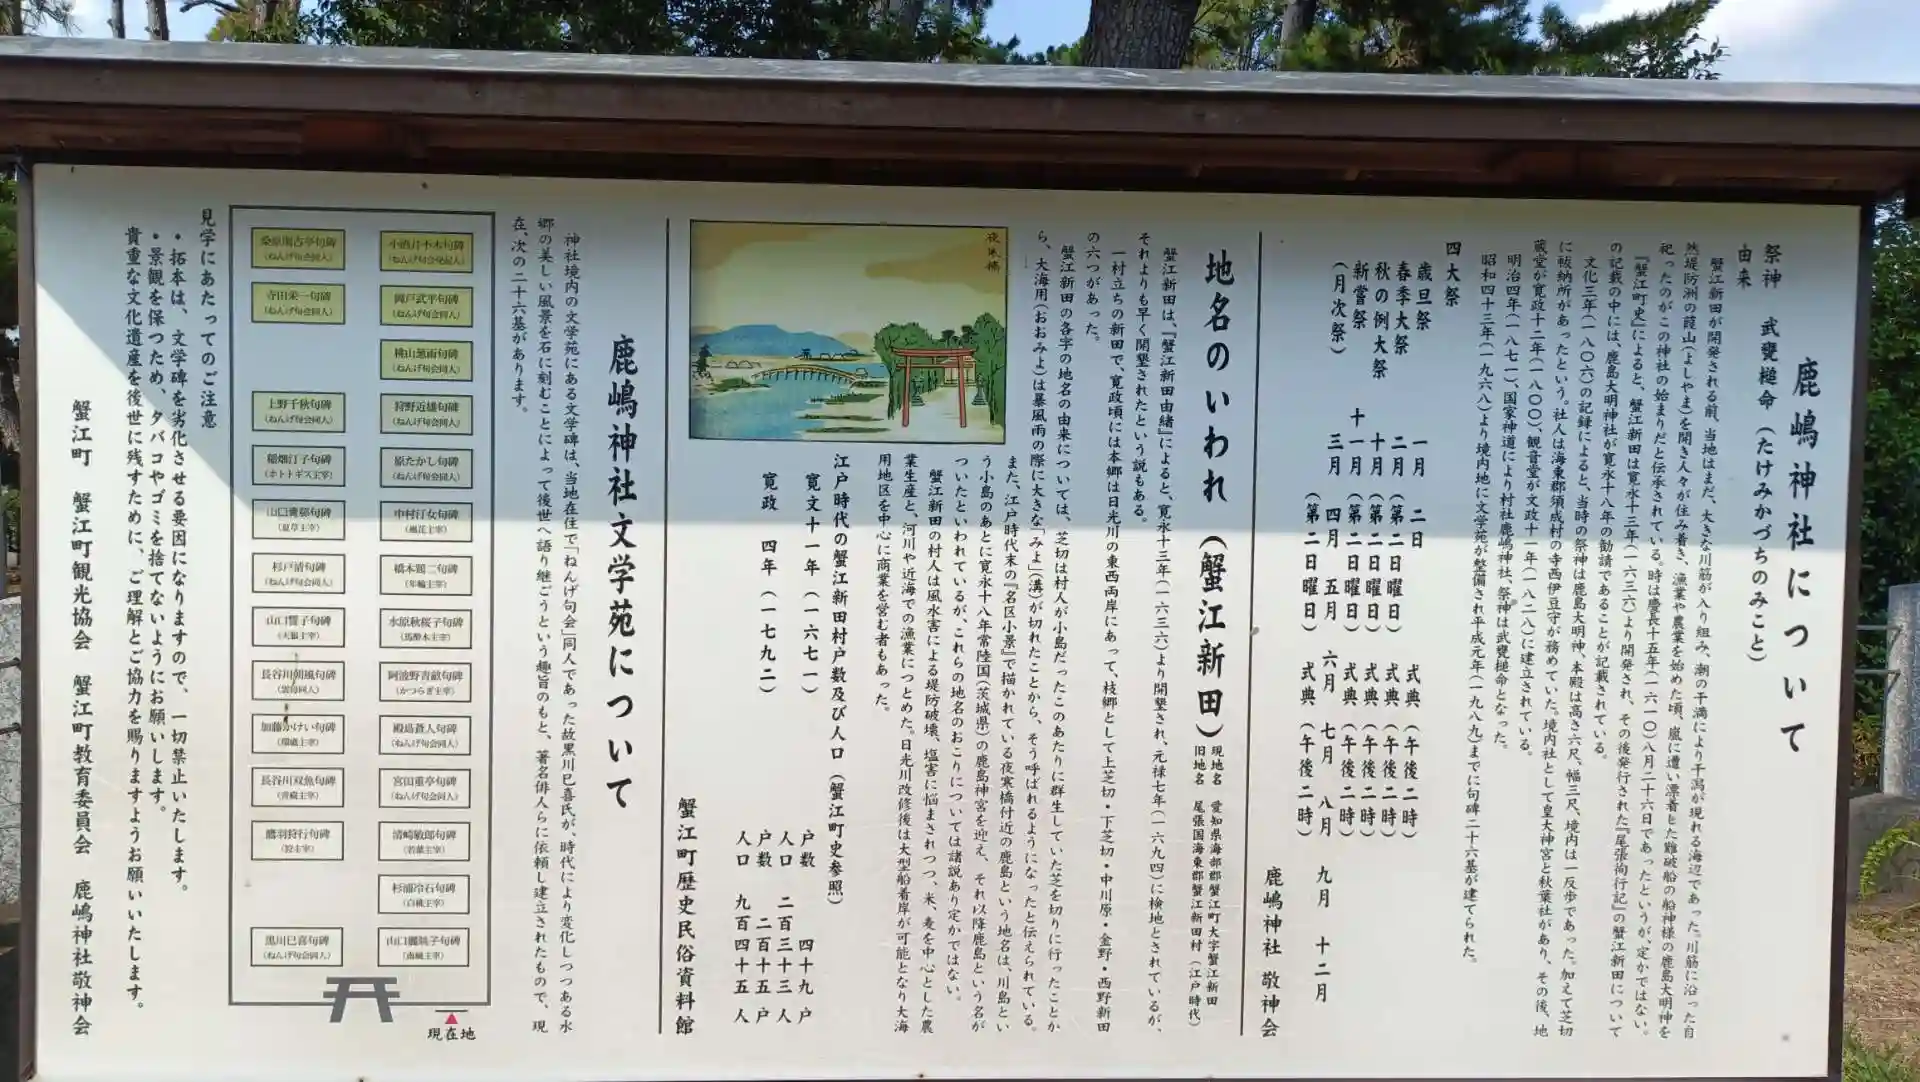 鹿嶋神社について
祭神　武甕槌命（たけみかづちのみこと）
由来
蟹江新田が開発される前、当地はまだ、大きな川筋が入り組み、潮の干満により干潟が現れる海辺であった。川筋に沿った自
然堤防洲の葭山（よしやま）を開き人々が住み着き、漁業や農業を始めた頃、嵐に遭い漂着した難破船の船神様の鹿島大明神を
祀ったのがこの神社の始まりだと伝承されている。時は慶長十五年（一六一〇）八月二十六日であったというが、定かではない。
『蟹江町史』によると、蟹江新田は寛永十三年（一六三六）より開発され、その後発行された『尾張徇行記』の蟹江新田について
の記載の中には、鹿島大明神社が寛永十八年の勧請であることが記載されている。
文化三年（一八〇六）の記録によると、当時の祭神は鹿島大明神、本殿は高さ六尺、幅三尺、境内は一反歩であった。加えて芝切
に祓納所があったという。社人は海東郡須成村の寺西伊豆守が務めていた。境内社として皇大神宮と秋葉社があり、その後、地
蔵堂が寛政十二年（一八〇〇）、観音堂が文政十一年（一八二八）に建立されている。
明治四年（一八七一）、国家神道により村社鹿嶋神社、祭神は武甕槌命となった。
昭和四十三年（一九六八）より境内地に文学苑が整備され平成元年（一九八九）までに句碑二十六基が建てられた。
四大祭
歳旦祭　一月　二日　式典（午後二時）
春季大祭　二月（第二日曜日）　式典（午後二時）
秋の例大祭　十月（第二日曜日）　式典（午後二時）
新嘗祭　十一月（第二日曜日）　式典（午後二時）
（月次祭）　三月　四月　五月　六月　七月　八月　九月　十二月
（第二日曜日）　式典（午後二時）
鹿嶋神社　敬神会
地名のいわれ（蟹江新田）
現地名　愛知県海部郡蟹江町大字蟹江新田
旧地名　尾張国海東郡蟹江新田村（江戸時代）
蟹江新田は、『蟹江新田由緒』によると、寛永十三年（一六三六）より開墾され、元禄七年（一六九四）に検地とされているが、
それよりも早く開墾されたという説もある。
一村立ちの新田で、寛政頃には本郷は日光川の東西両岸にあって、枝郷として上芝切・下芝切・中川原・金野・西野新田
の六つがあった。
蟹江新田の各字の地名の由来については、芝切は村人が小島だったこのあたりに群生していた芝を切りに行ったことか
ら、大海用（おおみよ）は暴風雨の際に大きな「みよ」（溝）が切れたことから、そう呼ばれるようになったと伝えられている。
また、江戸時代末の『名区小景』で描かれている夜寒橋付近の鹿島という地名は、川島とい
う小島のあとに寛永十八年常陸国（茨城県）の鹿島神宮を迎え、それ以降鹿島という名が
ついたといわれているが、これらの地名のおこりについては諸説あり定かではない。
蟹江新田の村人は風水害による堤防破壊、塩害に悩まされつつ、米、麦を中心とした農
業生産と、河川や近海での漁業につとめた。日光川改修後は大型船着岸が可能となり大海
用地区を中心に商業を営む者もあった。
江戸時代の蟹江新田村戸数及び人口（蟹江町史参照）
寛文十一年（一六七一）　戸数　四十九戸
人口　二百三十三人
寛政　四年（一七九二）　戸数　二百十五戸
人口　九百四十五人
蟹江町歴史民俗資料館
鹿嶋神社文学苑について
神社境内の文学苑にある文学碑は、当地在住で「ねんげ句会」同人であった故黒川巳喜氏が、時代により変化しつつある水
郷の美しい風景を石に刻むことによって後世へ語り継ごうという趣旨のもと、著名俳人らに依頼し建立されたもので、現
在、次の二十六基があります。
小酒井不木句碑
（ねんげ句会発起人）
岡戸武平句碑
（ねんげ句会同人）
桃山葱雨句碑
（ねんげ句会同人）
狩野近雄句碑
（ねんげ句会同人）
原たかし句碑
（ねんげ句会同人）
中村汀女句碑
（風花主宰）
橋本鶏二句碑
（年輪主宰）
水原秋桜子句碑
（馬酔木主宰）
阿波野青畝句碑
（かつらぎ主宰）
殿島蒼人句碑
（ねんげ句会同人）
宮田重亭句碑
（ねんげ句会同人）
清崎敏郎句碑
（若葉主宰）
杉浦冷石句碑
（白桃主宰）
山口誓子句碑
（天狼主宰）
桑原
句碑
（ねんげ句会同人）
寺田栄一句碑
（ねんげ句会同人）
上野千秋句碑
（ねんげ句会同人）
稲畑汀子句碑
（ホトトギス主宰）
山口青邨句碑
（夏草主宰）
杉戸清句碑
（ねんげ句会同人）
長谷川朝風句碑
（雲母同人）
加藤かけい句碑
（環礁主宰）
長谷川双魚句碑
（青樹主宰）
鷹羽狩行句碑
（狩主宰）
黒川巳喜句碑
（ねんげ句会同人）
現在地
見学にあたってのご注意
・拓本は、文学碑を劣化させる要因になりますので、一切禁止いたします。
・景観を保つため、タバコやゴミを捨てないようにお願いします。
貴重な文化遺産を後世に残すために、ご理解とご協力を賜りますようお願いいたします。
蟹江町　蟹江町観光協会　蟹江町教育委員会　鹿嶋神社敬神会